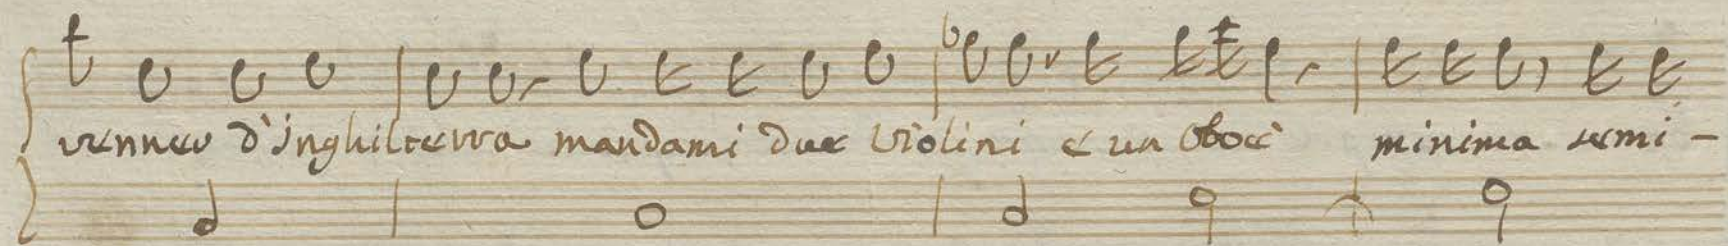 venner d'Inghilterra mandami due violini e un oboè minima semi-